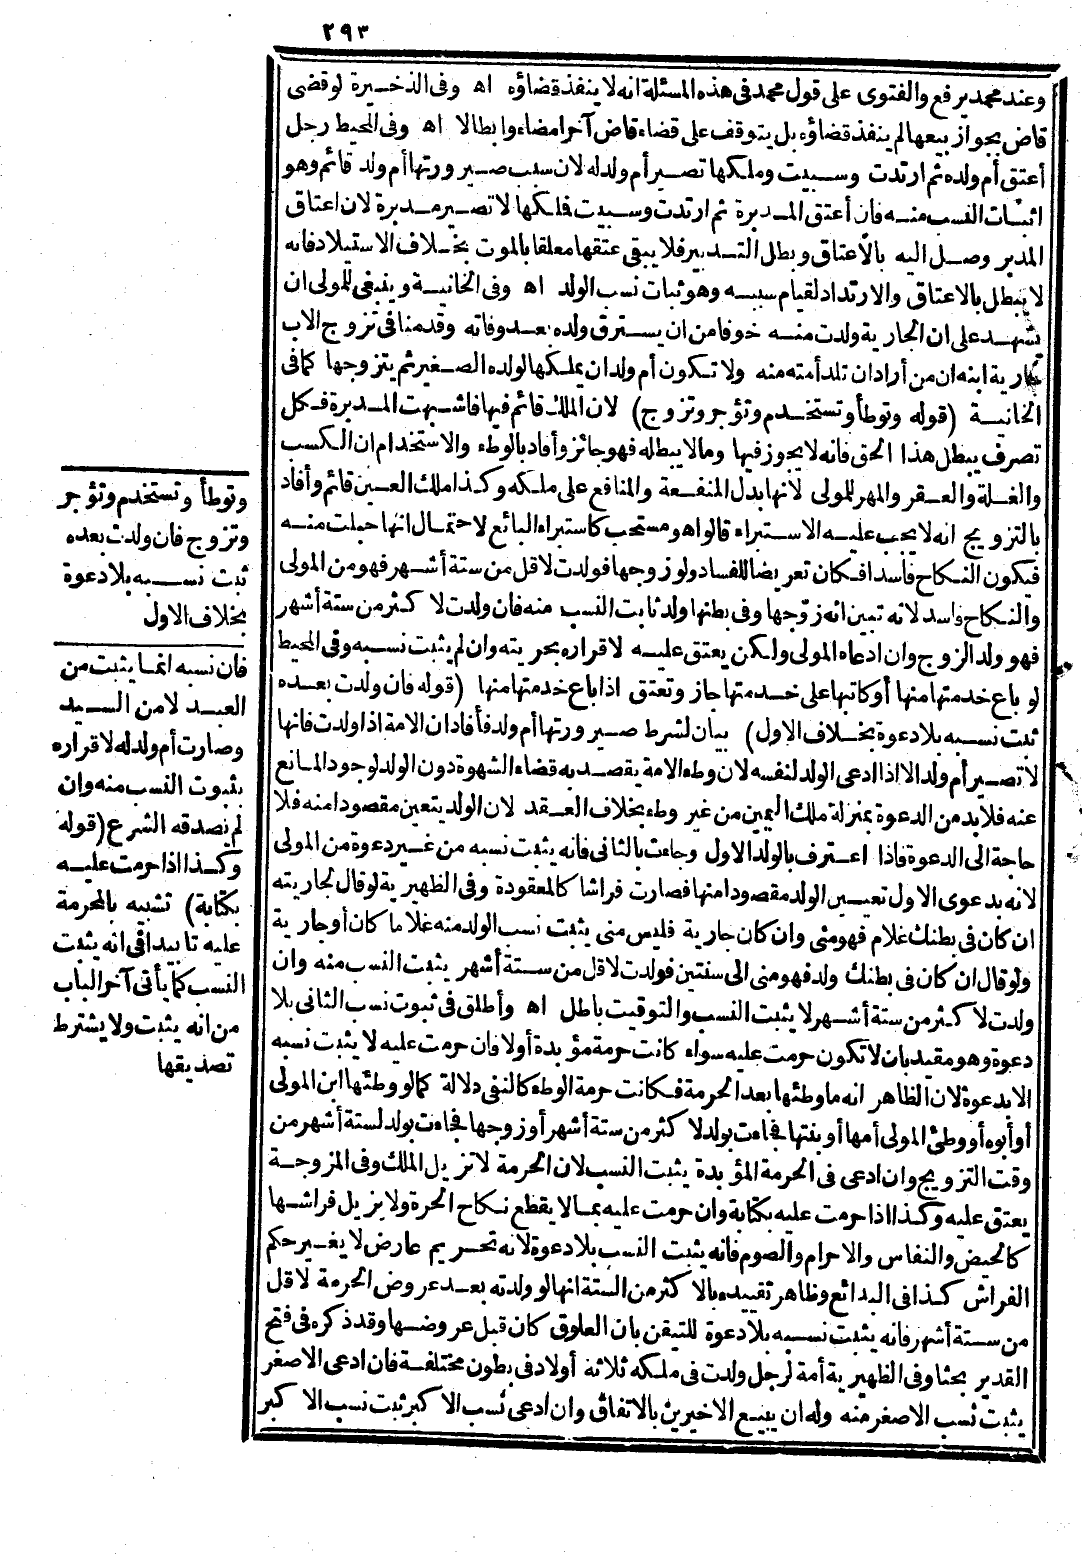 ٢٩٣
وعند محمد يرفع والفتوى على قول محمد فى هذه المسئلة انه لا ينفذ قضاؤه اه وفى الذخيرة لو قضى
قاض بجواز بيعها لم ينفذ قضاؤه بل يتوقف على قضاء قاض آخر امضاء وابطالا اه وفى المحيط رجل
أعتق أم ولده ثم ارتدت وسبيت وملكها تصير أم ولد له لان سبب صيرورتها أم ولد قائم وهو
اثبات النسب منه فان أعتق المدبرة ثم ارتدت وسبيت فملكها لا تصير مدبرة لان اعتاق
المدبر وصل اليه بالاعتاق وبطل التدبير فلا يبقى عتقها معلقا بالموت بخلاف الاستيلاد فانه
لا يبطل بالاعتاق والارتداد لقيام سببه وهو ثبات نسب الولد اه وفى الخانية وينبغى للمولى ان
يشهد على ان الجارية ولدت منه خوفا من ان يسترق ولده بعد وفاته وقدمنا فى تزوج الاب
جارية ابنه ان من أراد ان تلد أمته منه ولا تكون أم ولد ان يملكها لولده الصغير ثم يتزوجها كما فى
الخانية (قوله وتوطأ وتستخدم وتؤجر وتزوج) لان الملك قائم فيها فاشبهت المدبرة فكل
تصرف يبطل هذا الحق فانه لا يجوز فيها وما لا يبطله فهو جائز وأفاد بالوطء والاستخدام ان الكسب
والغلة والعقر والمهر للمولى لانها بدل المنفعة والمنافع على ملكه وكذا ملك العين قائم وأفاد
بالتزويج انه لا يجب عليه الاستبراء قالوا هو مستحب كاستبراء البائع لاحتمال انها حبلت منه
فيكون النكاح فاسدا فكان تعريضا للفساد ولو زوجها فولدت لاقل من ستة أشهر فهو من المولى
والنكاح فاسد لانه تبين انه زوجها وفى بطنها ولد ثابت النسب منه فان ولدت لاكثر من ستة أشهر
فهو ولد الزوج وان ادعاه المولى ولكن يعتق عليه لاقراره بحريته وان لم يثبت نسبه وفى المحيط
لو باع خدمتها منها أو كاتبها على خدمتها جاز وتعتق اذا باع خدمتها منها (قوله فان ولدت بعده
ثبت نسبه بلا دعوة بخلاف الاول) بيان لشرط صيرورتها أم ولد فأفاد ان الامة اذا ولدت فانها
لا تصير أم ولد الا اذا ادعى الولد لنفسه لان وطء الامة يقصد به قضاء الشهوة دون الولد لوجود المانع
عنه فلا بد من الدعوة بمنزلة ملك اليمين من غير وطء بخلاف العقد لان الولد يتعين مقصودا منه فلا
حاجة الى الدعوة فاذا اعترف بالولد الاول وجاءت بالثانى فانه يثبت نسبه من غير دعوة من المولى
لانه بدعوى الاول تعين الولد مقصودا منها فصارت فراشا كالمعقودة وفى الظهيرية لو قال لجاريته
ان كان فى بطنك غلام فهو منى وان كان جارية فليس منى يثبت نسب الولد منه غلاما كان أو جارية
ولو قال ان كان فى بطنك ولد فهو منى الى سنتين فولدت لاقل من ستة أشهر يثبت النسب منه وان
ولدت لاكثر من ستة أشهر لا يثبت النسب والتوقيت باطل اه وأطلق فى ثبوت نسب الثانى بلا
دعوة وهو مقيد بان لا تكون حرمت عليه سواء كانت حرمة مؤبدة أولا فان حرمت عليه لا يثبت نسبه
الا بدعوة لان الظاهر انه ما وطئها بعد الحرمة فكانت حرمة الوطء كالنفى دلالة كما لو وطئها ابن المولى
أو أبوه أو وطئ المولى أمها أو بنتها فجاءت بولد لاكثر من ستة أشهر أو زوجها فجاءت بولد لستة أشهر من
وقت التزويج وان ادعى فى الحرمة المؤبدة يثبت النسب لان الحرمة لا تزيل الملك وفى المزوجة
يعتق عليه وكذا اذا حرمت عليه بكتابة وان حرمت عليه بما لا يقطع نكاح الحرة ولا يزيل فراشها
كالحيض والنفاس والاحرام والصوم فانه يثبت النسب بلا دعوة لانه تحريم عارض لا يغير حكم
الفراش كذا فى البدائع وظاهر تقييده بالاكثر من الستة انها لو ولدته بعد عروض الحرمة لاقل
من ستة أشهر فانه يثبت نسبه بلا دعوة للتيقن بان العلوق كان قبل عروضها وقد ذكره فى فتح
القدير بحثا وفى الظهيرية أمة لرجل ولدت فى ملكه ثلاثة أولاد فى بطون مختلفة فان ادعى الاصغر
يثبت نسب الاصغر منه وله ان يبيع الاخيرين بالاتفاق وان ادعى نسب الاكبر ثبت نسب الاكبر
وتوطأ وتستخدم وتؤجر
وتزوج فان ولدت بعده
ثبت نسبه بلا دعوة
بخلاف الاول
فان نسبه انما يثبت من
العبد لا من السيد
وصارت أم ولد له لاقراره
بثبوت النسب منه وان
لم يصدقه الشرع (قوله
وكذا اذا حرمت عليه
بكتابة) تشبيه بالمحرمة
عليه تأبيدا فى انه يثبت
النسب كما يأتى آخر الباب
من انه يثبت ولا يشترط
تصديقها